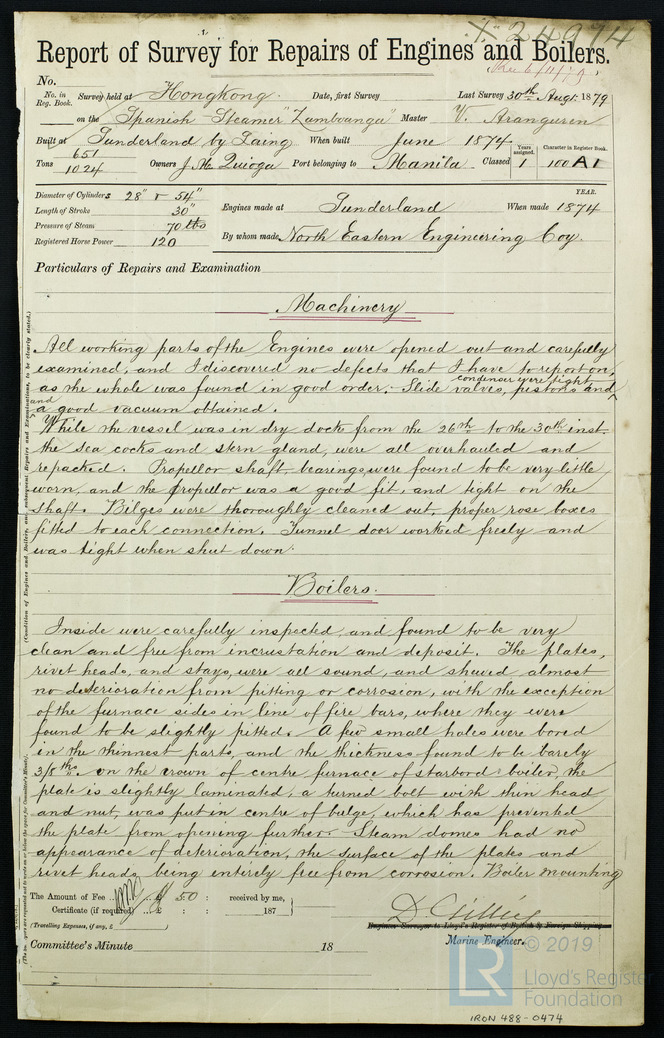 24974
Report of Survey for Repairs of Engines and Boilers.
Rec 6/11/79
No.
No. in Reg. Book. Survey held at Hongkong. Date, first Survey Last Survey 30th Augt. 1879
on the Spanish Steamer "Zamboanga" Master V. Aranguren
Built at Sunderland by Laing When built June 1874
Tons 651 1024 Owners J. M. Tuioga Port belonging to Manila Classed Years assigned. 1 Character in Register Book. 100 A1
Diameter of Cylinders 28" & 54"
Length of Stroke 30"
Pressure of Steam 70 lbs
Registered Horse Power 120
Engines made at Sunderland When made YEAR. 1874
By whom made North Eastern Engineering Coy.
Particulars of Repairs and Examination
Machinery
All working parts of the Engines were opened out and carefully
examined, and I discovered no defects that I have to report on,
as the whole was found in good order. Slide valves, pistons and condenser were tight
and a good vacuum obtained.
While the vessel was in dry dock from the 26th to the 30th inst.
the sea cocks and stern gland, were all overhauled and
repacked. Propellor shaft, bearings, were found to be very little
worn, and the propellor was a good fit, and tight on the
shaft. Bilges were thoroughly cleaned out, proper rose boxes
fitted to each connection. Tunnel door worked freely and
was tight when shut down.
Boilers.
Inside were carefully inspected, and found to be very
clean and free from incrustation and deposit. The plates,
rivet heads, and stays, were all sound, and shewed almost
no deterioration from pitting or corrosion, with the exception
of the furnace sides in line of fire bars, where they were
found to be slightly pitted. A few small holes were bored
in the thinnest parts, and the thickness found to be barely
3/8ths. on the crown of centre furnace of starbord boiler, the
plate is slightly laminated, a turned bolt with thin head
and nut, was put in centre of bulge, which has prevented
the plate from opening further. Steam domes had no
appearance of deterioration, the surface of the plates and
rivet heads being entirely free from corrosion. Boiler mounting
The Amount of Fee £ 50 : : received by me,
Certificate (if required) £ : : 187
(Travelling Expenses, if any, £ )
D. Gillies
Engineer Surveyor to Lloyd's Register of British & Foreign Shipping
Marine Engineer.
Committee's Minute 18
© 2019
LR
Lloyd's Register
Foundation
IRON 488-0474